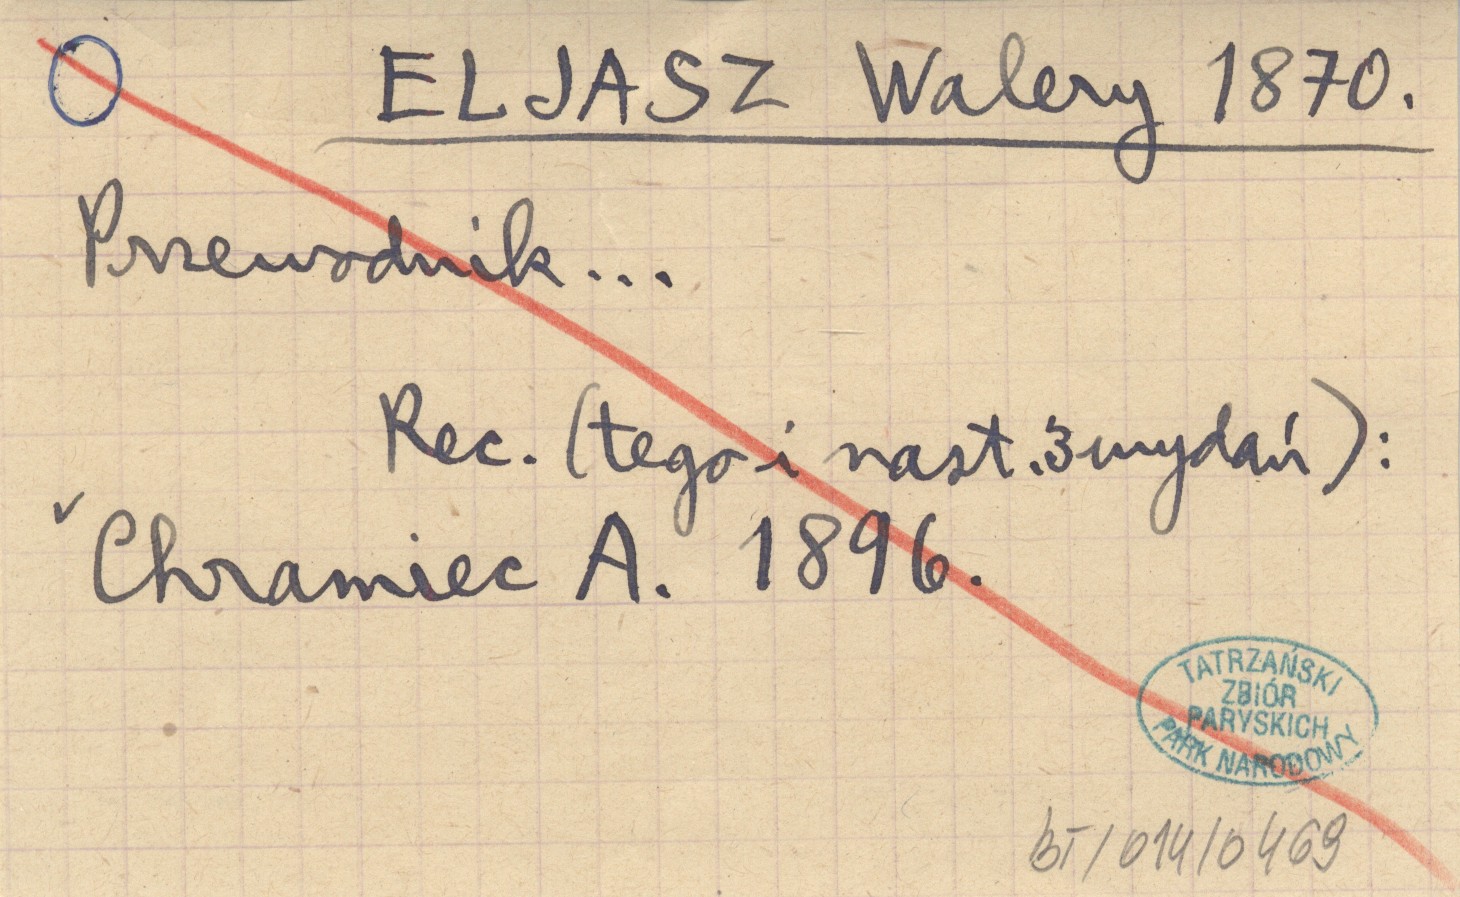 ELJASZ Walery 1870.
Przewodnik...
Rec. (tego i nast. 3 wydań):
✓ Chramiec A. 1896.
TATRZAŃSKI
ZBIÓR
PARYSKICH
PARK NARODOWY
BT/014/0469